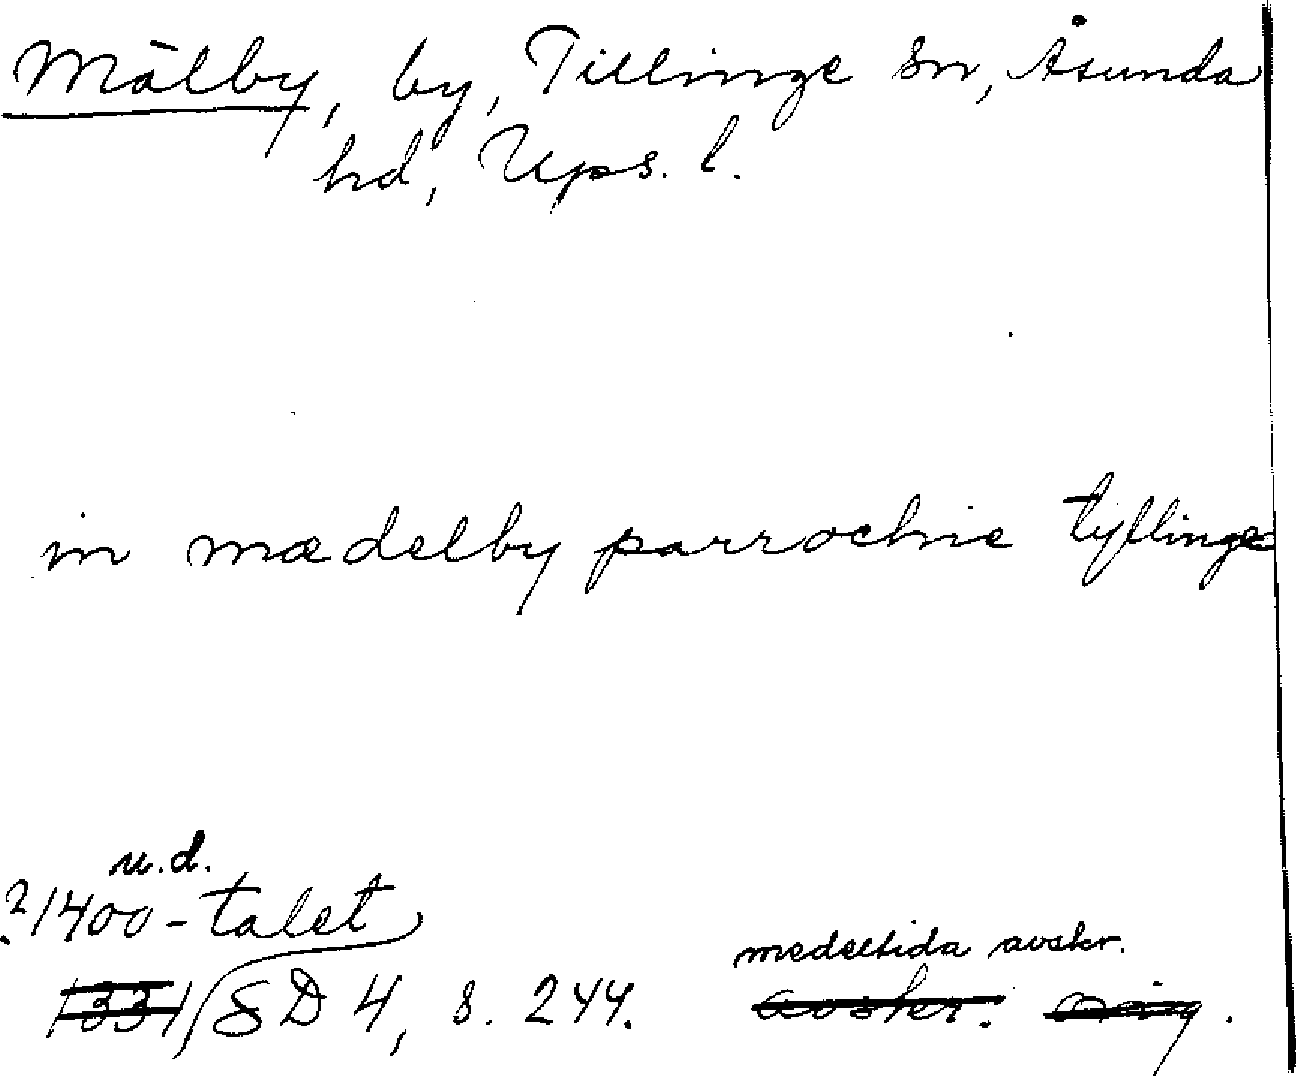 Mälby, by, Tillinge sn, Åsunda
hd, Upps. l.
in mædelby parrochie tyflinge
u.d.
?1400-talet
1331 SD 4, s. 244.
medeltida avskr.
avskr.